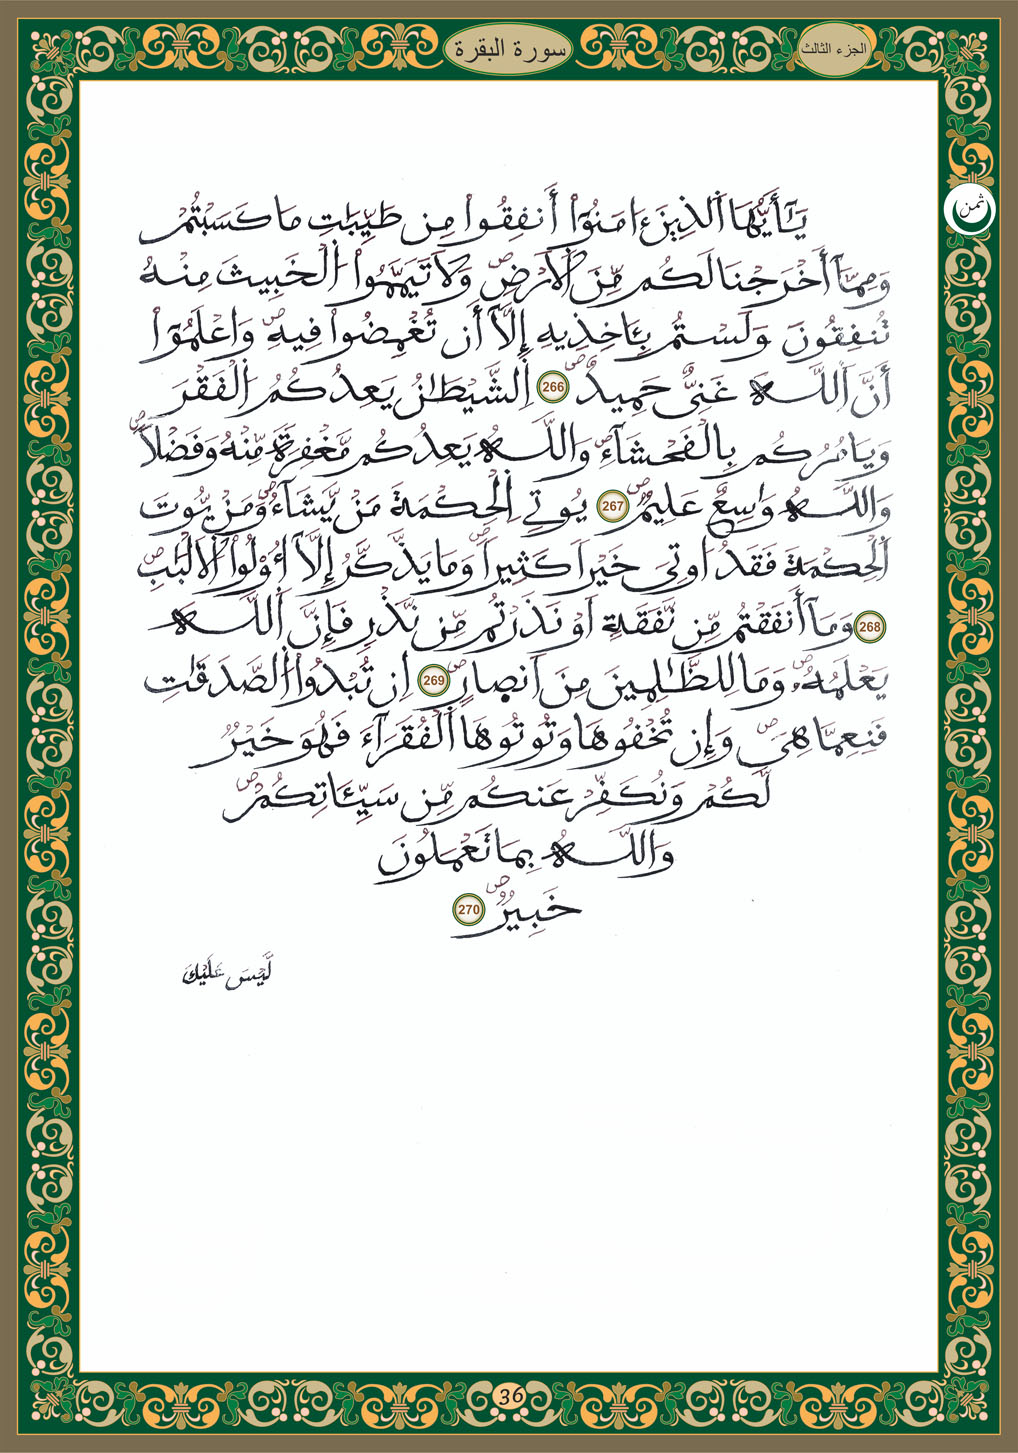 سورة البقرة
الجزء الثالث
ثمن
يَٰٓأَيُّهَا اَلذِينَ ءَامَنُوٓاْ أَنفِقُواْ مِن طَيِّبَٰتِ مَا كَسَبْتُمْ
وَمِمَّآ أَخْرَجْنَا لَكُم مِّنَ اَلَارْضِ وَلَا تَيَمَّمُواْ اُلْخَبِيثَ مِنْهُ
تُنفِقُونَ وَلَسْتُم بِـَٔاخِذِيهِ إِلَّآ أَن تُغْمِضُواْ فِيهِ وَاعْلَمُوٓاْ
أَنَّ اَللَّهَ غَنِيٌّ حَمِيدٌ 266 اِلشَّيْطَٰنُ يَعِدُكُمُ اُلْفَقْرَ
وَيَامُرُكُم بِالْفَحْشَآءِ وَاللَّهُ يَعِدُكُم مَّغْفِرَةً مِّنْهُ وَفَضْلًا
وَاللَّهُ وَٰسِعٌ عَلِيمٌ 267 يُوتِے اِلْحِكْمَةَ مَنْ يَّشَآءُ وَمَنْ يُّوتَ
اَلْحِكْمَةَ فَقَدُ اوتِيَ خَيْرًا كَثِيرًا وَمَا يَذَّكَّرُ إِلَّآ أُوْلُواْ اُلَالْبَٰبِ
268 وَمَآ أَنفَقْتُم مِّن نَّفَقَةٍ اَوْ نَذَرْتُم مِّن نَّذْرٍ فَإِنَّ اَللَّهَ
يَعْلَمُهُۥ وَمَا لِلظَّٰلِمِينَ مِنَ اَنصارٍ 269 اِن تُبْدُواْ اُلصَّدَقَٰتِ
فَنِعِمَّا هِيَ وَإِن تُخْفُوهَا وَتُوتُوهَا اَلْفُقَرَآءَ فَهُوَ خَيْرٌ
لَّكُمْ وَنُكَفِّرْ عَنكُم مِّن سَيِّـَٔاتِكُمْ
وَاللَّهُ بِمَا تَعْمَلُونَ
خَبِيرٌ 270
لَّيْسَ عَلَيْكَ
36